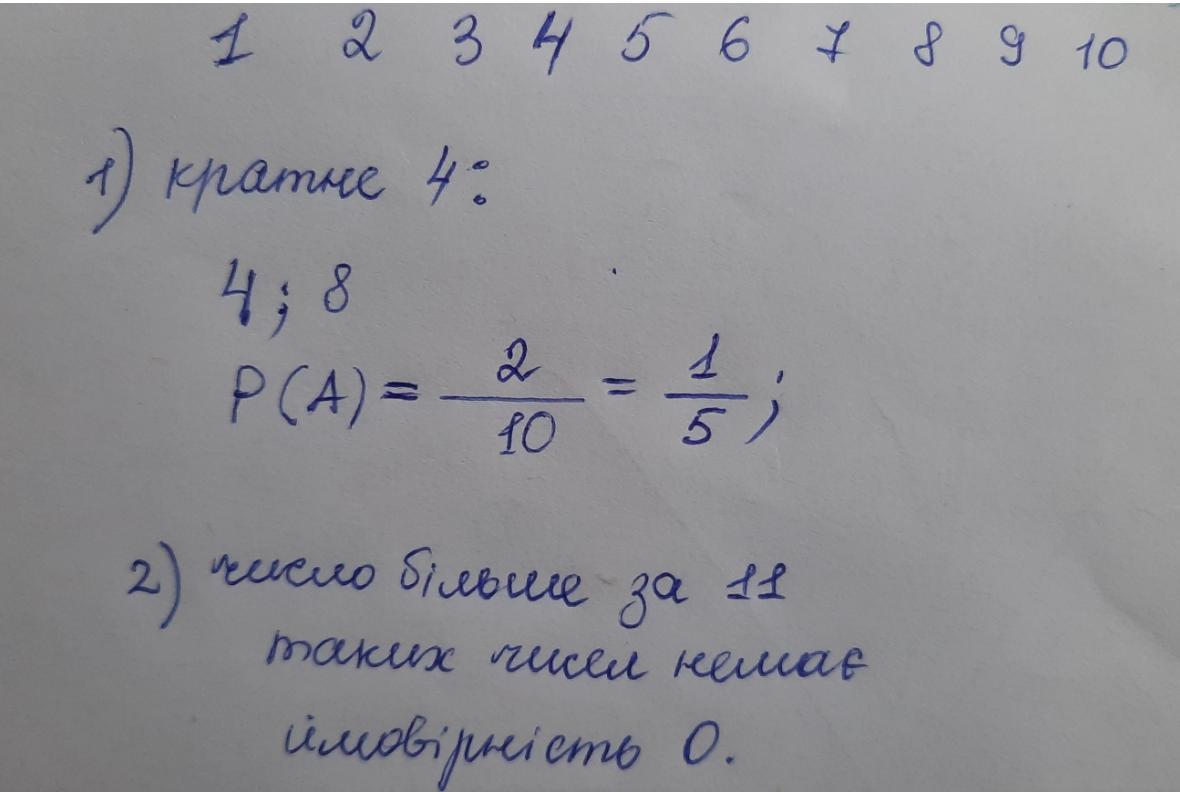 1 2 3 4 5 6 7 8 9 10
1) кратне 4:
4; 8
P(A) = 2/10 = 1/5;
2) число більше за 11
таких чисел немає
ймовірність 0.